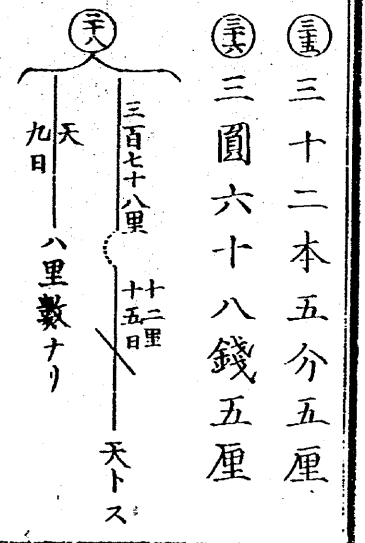 三十五
三十二本五分五厘
三十六
三圓六十八錢五厘
三十八
三百七十八里
十二里
十五日
天トス
天
九日
八里數ナリ